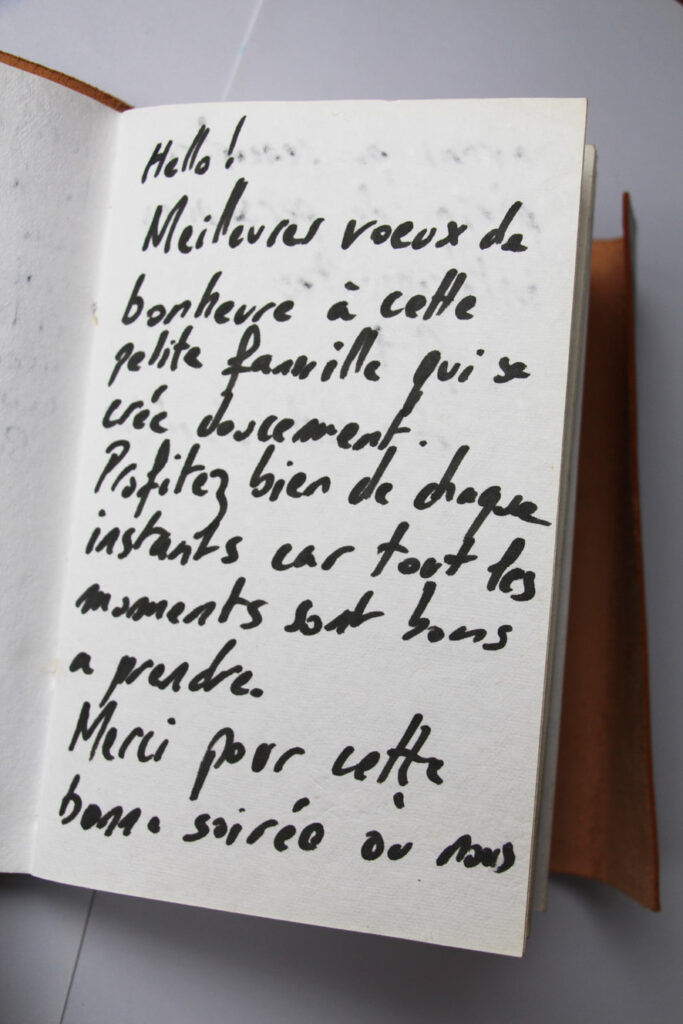 Hello!
Meilleures voeux de
bonheure à cette
petite famille qui se
crée doucement.
Profitez bien de chaque
instants car tout les
moments sont bons
a prendre.
Merci pour cette
bonne soirée où nous